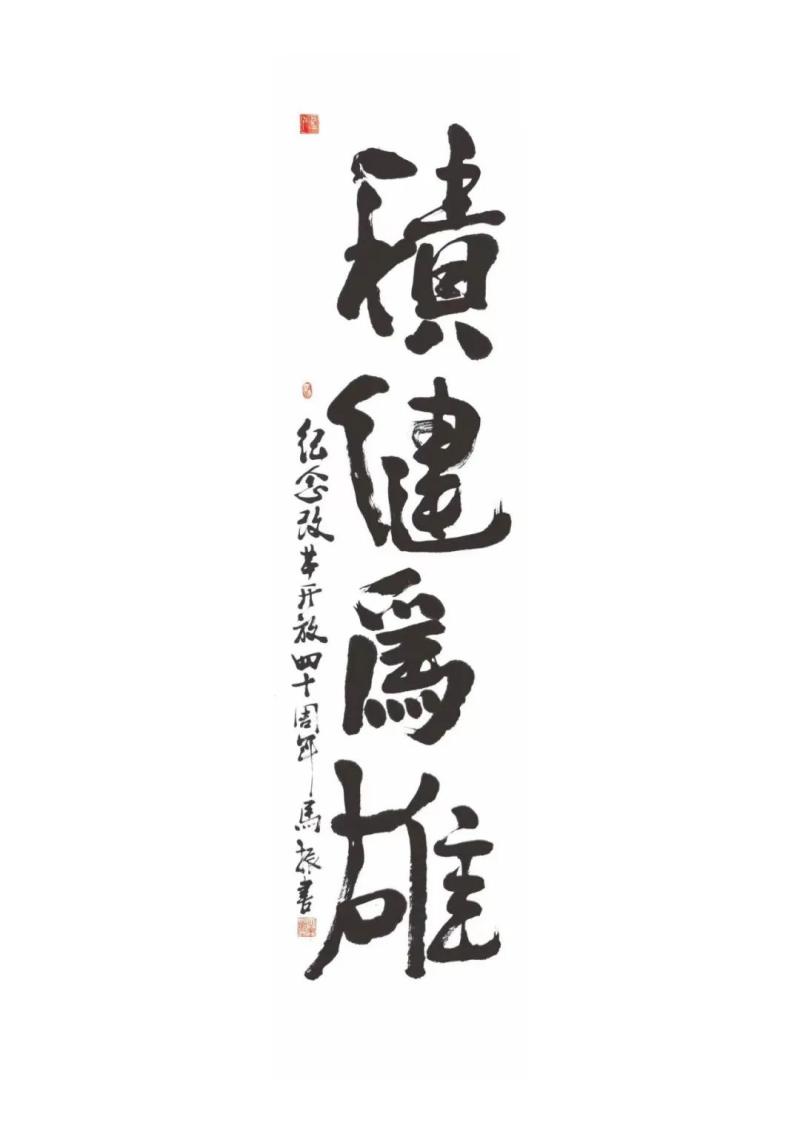 積健為雄
纪念改革开放四十周年 馬振書